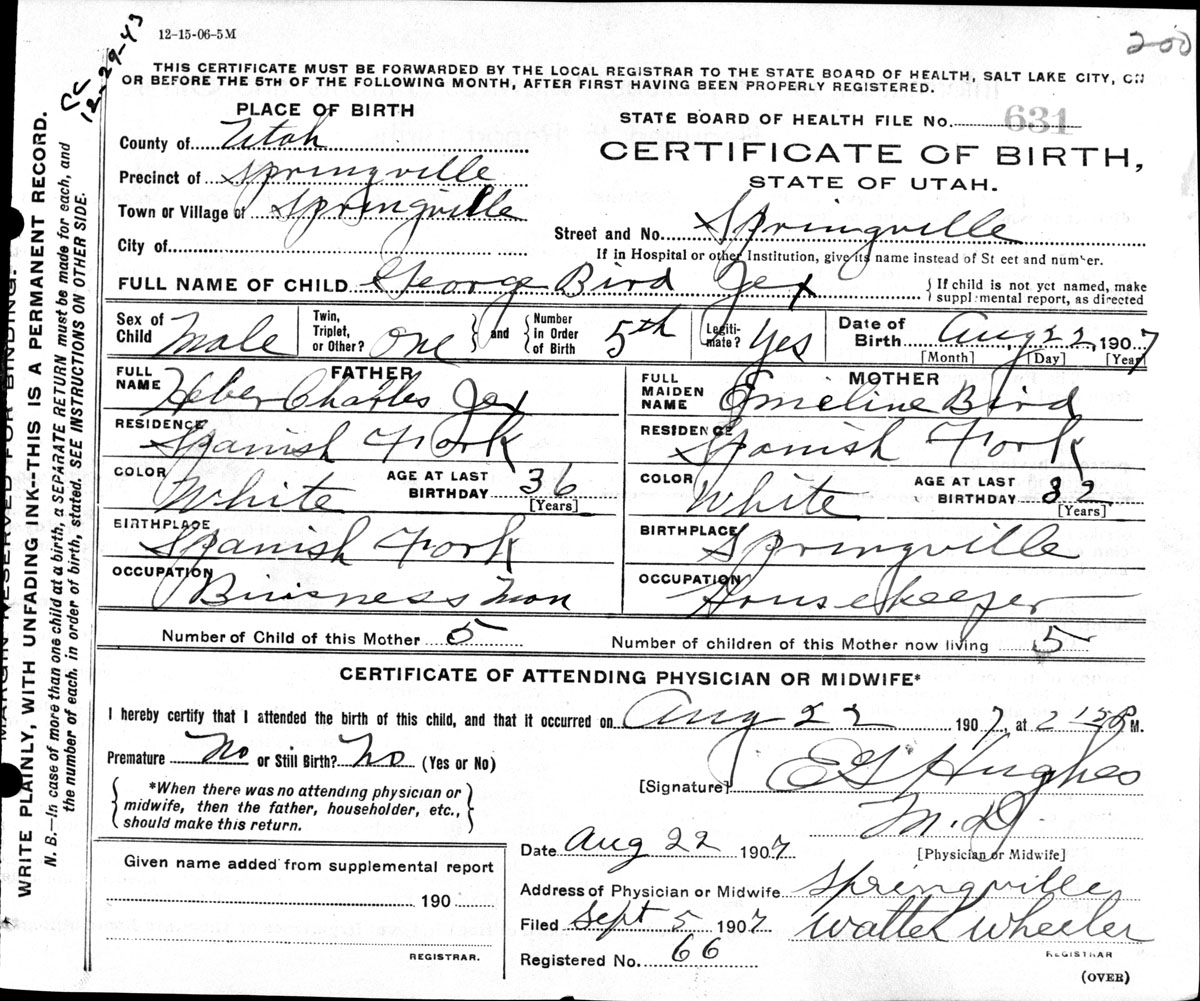 12-15-06-5M
200
CC
12-29-43
THIS CERTIFICATE MUST BE FORWARDED BY THE LOCAL REGISTRAR TO THE STATE BOARD OF HEALTH, SALT LAKE CITY, ON
OR BEFORE THE 5TH OF THE FOLLOWING MONTH, AFTER FIRST HAVING BEEN PROPERLY REGISTERED.
MARGIN RESERVED FOR BINDING.
WRITE PLAINLY, WITH UNFADING INK--THIS IS A PERMANENT RECORD.
N. B.—In case of more than one child at a birth, a SEPARATE RETURN must be made for each, and
the number of each, in order of birth, stated. SEE INSTRUCTIONS ON OTHER SIDE.
PLACE OF BIRTH
County of Utah
Precinct of Springville
Town or Village of Springville
City of
STATE BOARD OF HEALTH FILE No. 631
CERTIFICATE OF BIRTH,
STATE OF UTAH.
Street and No. Springville
If in Hospital or other Institution, give its name instead of St eet and number.
FULL NAME OF CHILD George Bird Jex
{ If child is not yet named, make
supplemental report, as directed
Sex of Child Male
Twin, Triplet, or Other? One } and { Number in Order of Birth 5th
Legiti-mate? Yes
Date of Birth Aug 22, 1907
[Month] [Day] [Year]
FATHER
FULL NAME Heber Charles Jex
RESIDENCE Spanish Fork
COLOR White AGE AT LAST BIRTHDAY 36 [Years]
BIRTHPLACE Spanish Fork
OCCUPATION Biusness Man
MOTHER
FULL MAIDEN NAME Emeline Bird
RESIDENCE Spanish Fork
COLOR White AGE AT LAST BIRTHDAY 32 [Years]
BIRTHPLACE Springville
OCCUPATION Housekeeper
Number of Child of this Mother 5 Number of children of this Mother now living 5
CERTIFICATE OF ATTENDING PHYSICIAN OR MIDWIFE*
I hereby certify that I attended the birth of this child, and that it occurred on Aug 22 1907, at 2 P M.
Premature? No or Still Birth? No (Yes or No)
{ *When there was no attending physician or
midwife, then the father, householder, etc.,
should make this return. }
[Signature] EG Hughes
M.D
[Physician or Midwife]
Given name added from supplemental report
190
REGISTRAR.
Date Aug 22 1907
Address of Physician or Midwife Springville
Filed Sept 5 1907 Walter Wheeler
REGISTRAR
Registered No. 66
(OVER)